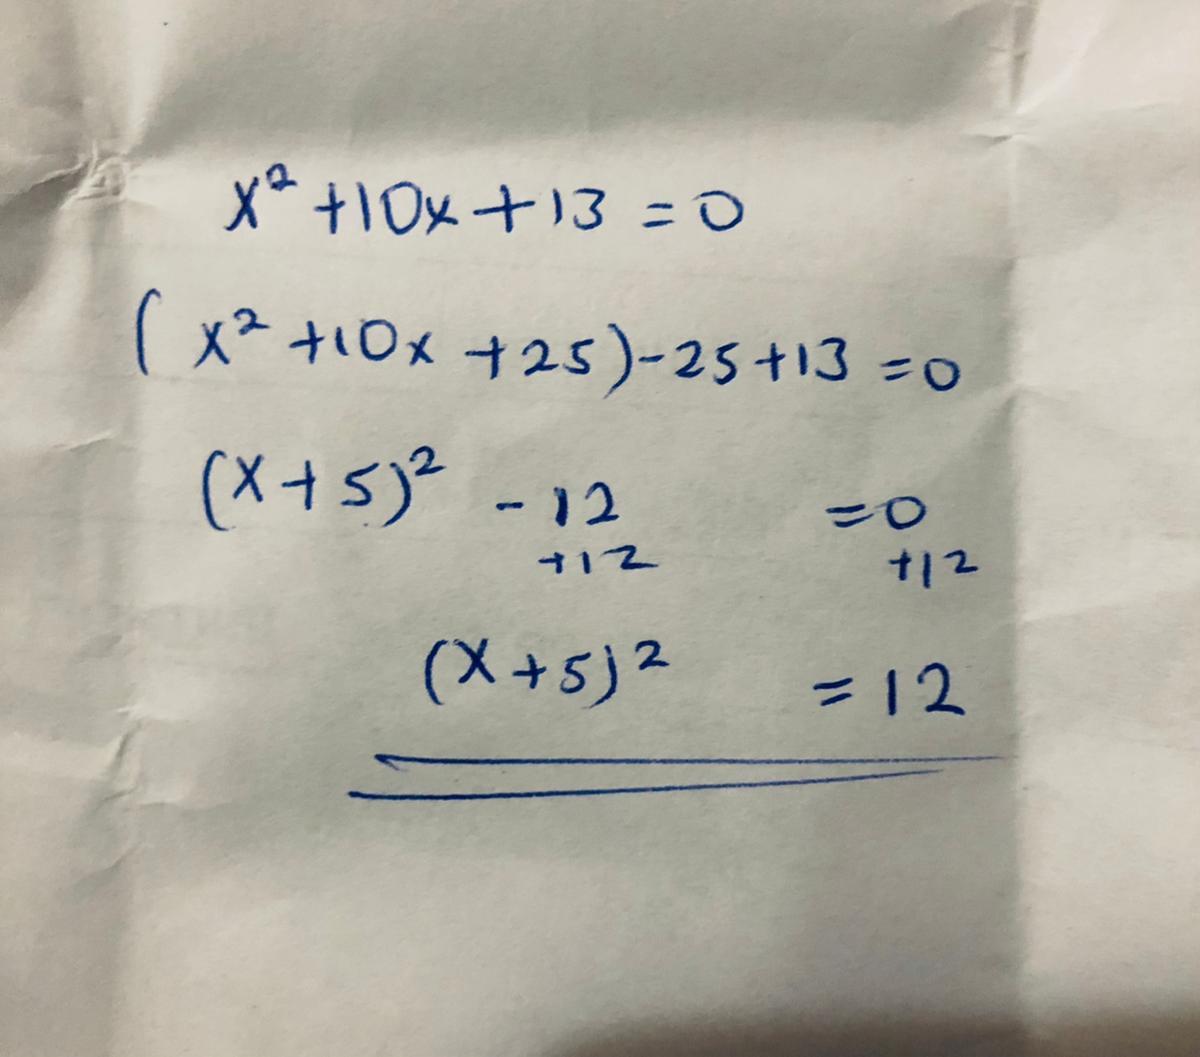 x² +10x + 13 = 0
( x² +10x +25)-25+13 =0
(x+5)² -12 =0
+12 +12
(x+5)² = 12